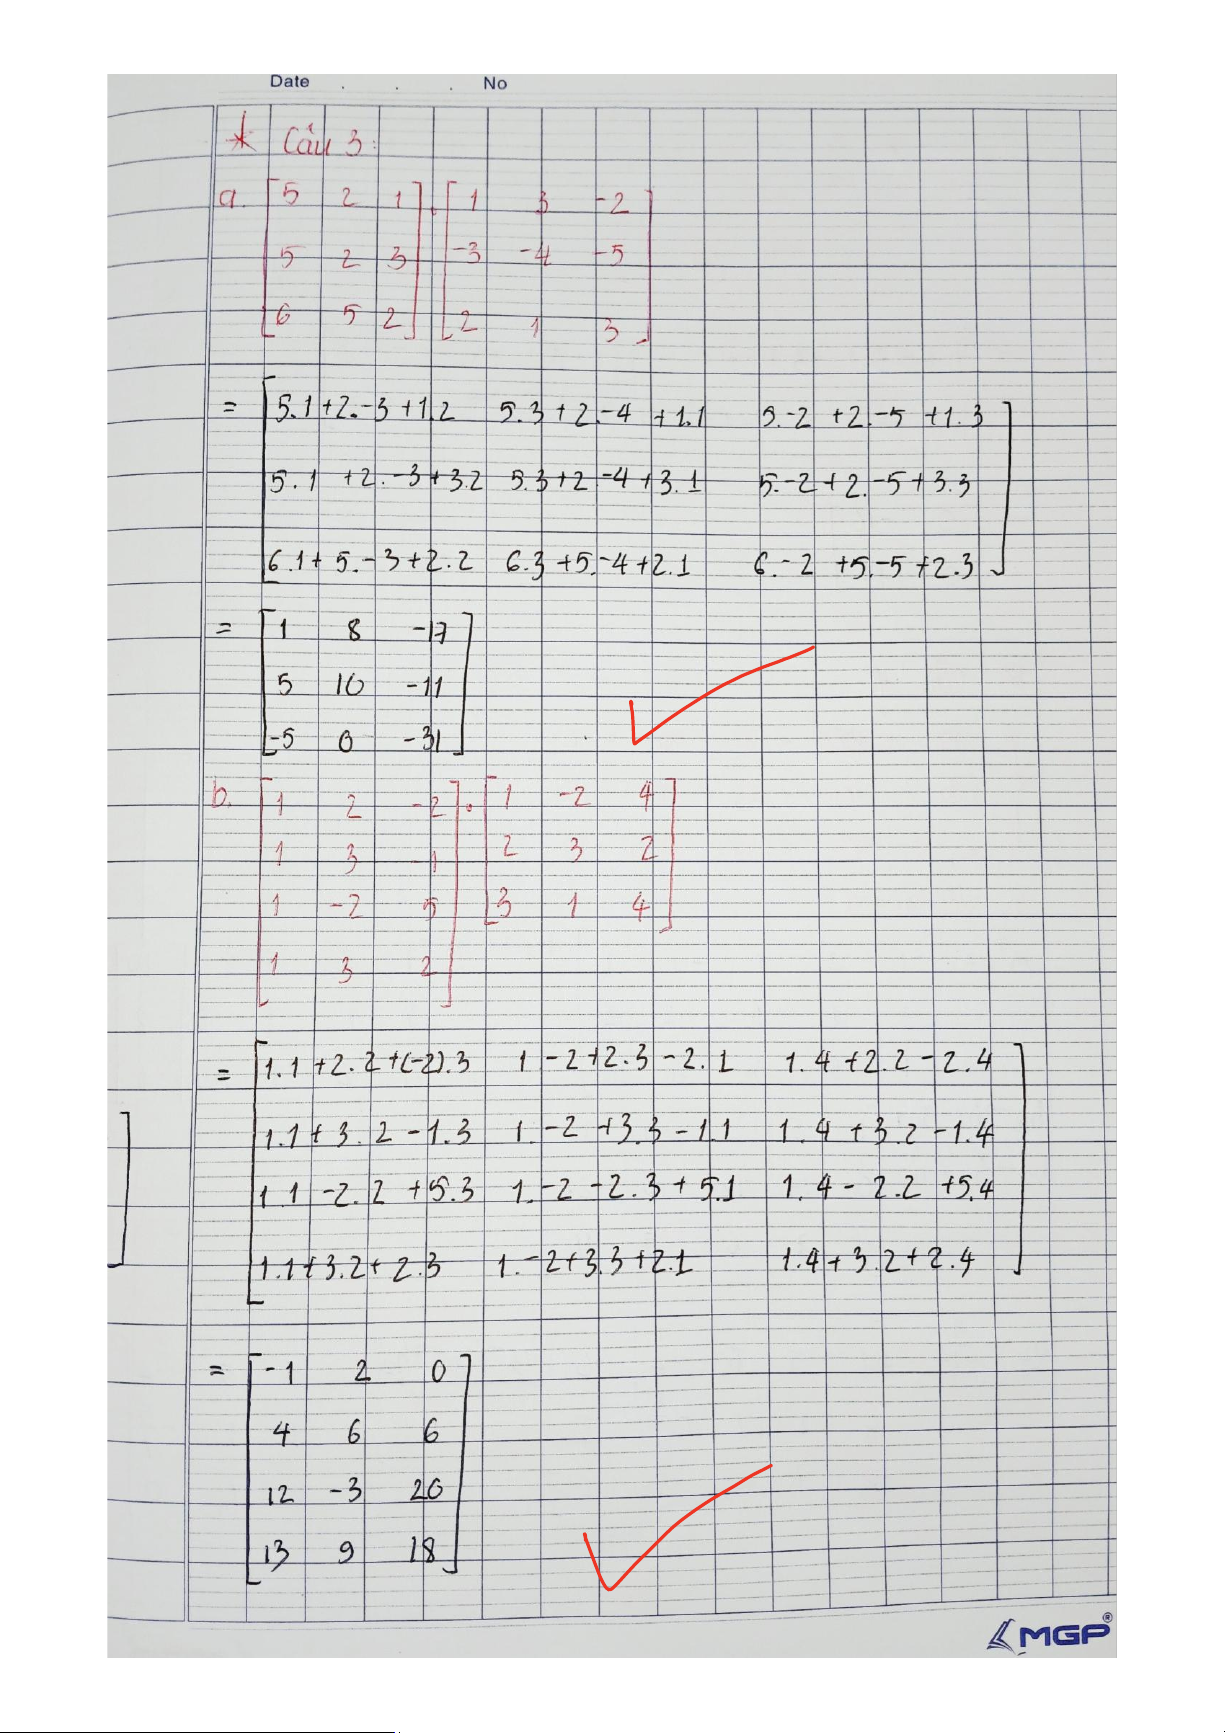 Date . . . No
* Câu 3:
a. [ 5 2 1 ] . [ 1 3 -2 ]
[ 5 2 3 ] [ -3 -4 -5 ]
[ 6 5 2 ] [ 2 1 3 ]
= [ 5.1 +2.-3 +1.2 5.3 +2.-4 +1.1 5.-2 +2.-5 +1.3 ]
[ 5.1 +2.-3 +3.2 5.3 +2 -4 +3.1 5.-2 +2.-5 +3.3 ]
[ 6.1 + 5.-3 +2.2 6.3 +5.-4 +2.1 6.-2 +5.-5 +2.3 ]
= [ 1 8 -17 ]
[ 5 10 -11 ]
[ -5 0 -31 ]
b. [ 1 2 -2 ] . [ 1 -2 4 ]
[ 1 3 -1 ] [ 2 3 2 ]
[ 1 -2 5 ] [ 3 1 4 ]
[ 1 3 2 ]
= [ 1.1 +2.2 +(-2).3 1 -2 +2.3 -2.1 1.4 +2.2 -2.4 ]
[ 1.1 + 3.2 -1.3 1.-2 +3.3 -1.1 1.4 + 3.2 -1.4 ]
[ 1.1 -2.2 +5.3 1.-2 -2.3 + 5.1 1.4 - 2.2 +5.4 ]
[ 1.1 + 3.2 + 2.3 1.-2 + 3.3 + 2.1 1.4 + 3.2 + 2.4 ]
= [ -1 2 0 ]
[ 4 6 6 ]
[ 12 -3 20 ]
[ 13 9 18 ]
MGP®